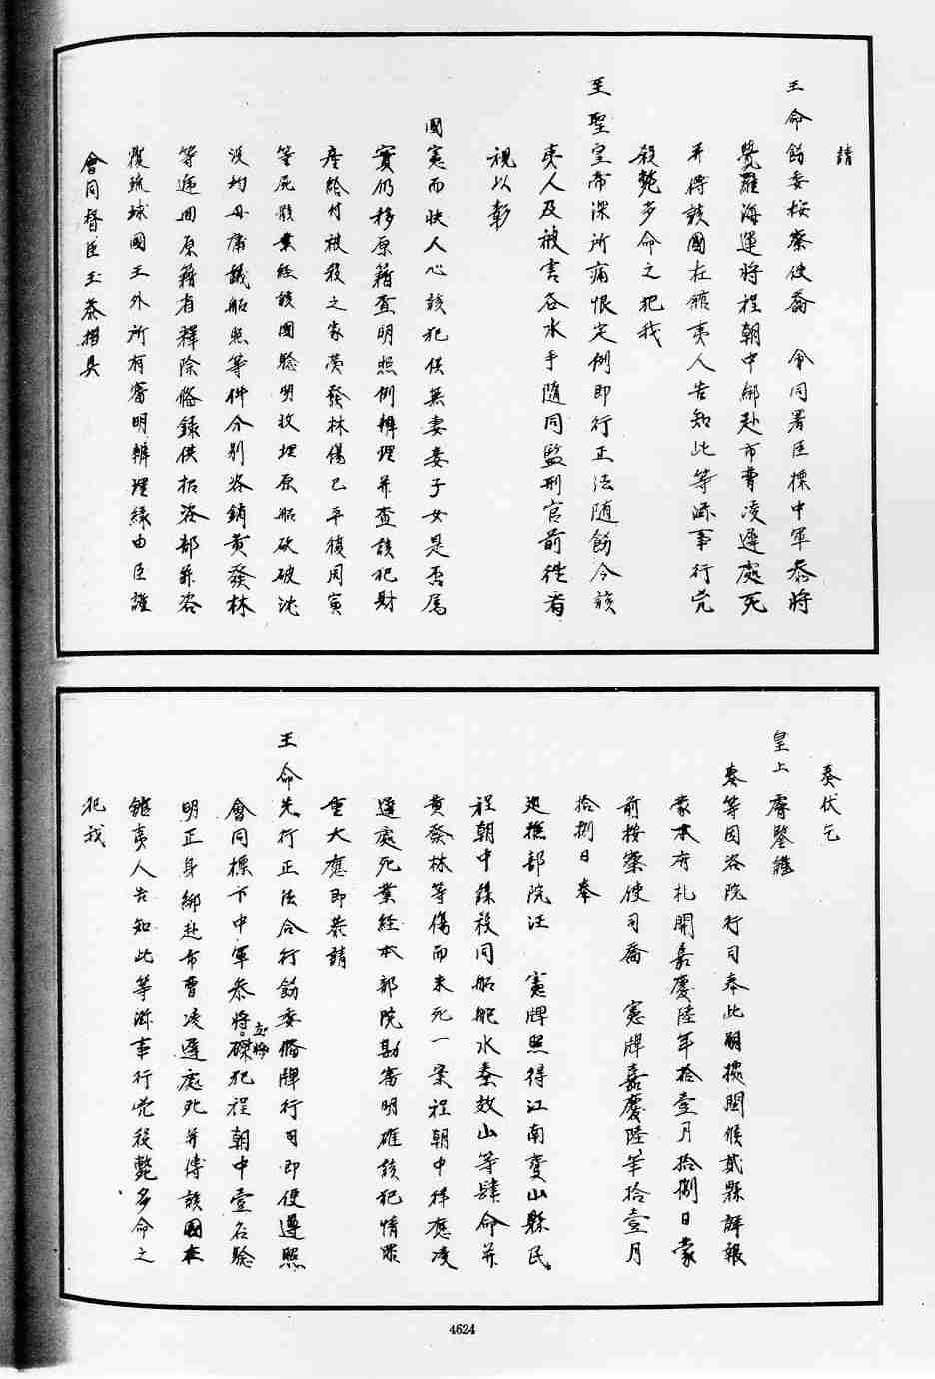 請
王命飭委按察使喬　令同署臣標中軍叅將
覺羅海運將程朝中綁赴市曹凌遲處死
并傳該國在館夷人告知此等滋事行兇
殺斃多命之犯我
至聖皇帝深所痛恨定例即行正法随飭令該
夷人及被害各水手隨同監刑官前徃看
視以彰
國憲而快人心該犯供無妻妾子女是否属
實仍移原籍查明照例辦理并查該犯財
產給付被殺之家黄發林傷已平復周寅
等屍骸業經該國騐明收埋原船砍破沈
没均毋庸議船照等件分别咨銷黄發林
等逓回原籍省釋除俻錄供招咨部并咨
覆琉球國王外所有審明辦理縁由臣謹
會同督臣玉恭摺具
奏伏乞
皇上　睿鑒謹
奏等因咨院行司奉此嗣據閩候貳縣詳報
蒙本府札開嘉慶陸年拾壹月拾捌日蒙
前按察使司喬　憲牌嘉慶陸年拾壹月
拾捌日奉
廵撫部院汪　憲牌照得江南㚇山縣民
程朝中謀殺同船舵水秦效山等肆命并
黄發林等傷而未死一案程朝中擇應凌
遲處死業經本部院勘審明確該犯情罪
重大應即恭請
王命先行正法合行飭委備牌行司即便遵照
會同標下中軍叅將立將磔犯程朝中壹名騐
明正身綁赴市曹凌遲處死并傳該國在
館夷人告知此等滋事行兇殺斃多命之
犯我
4624